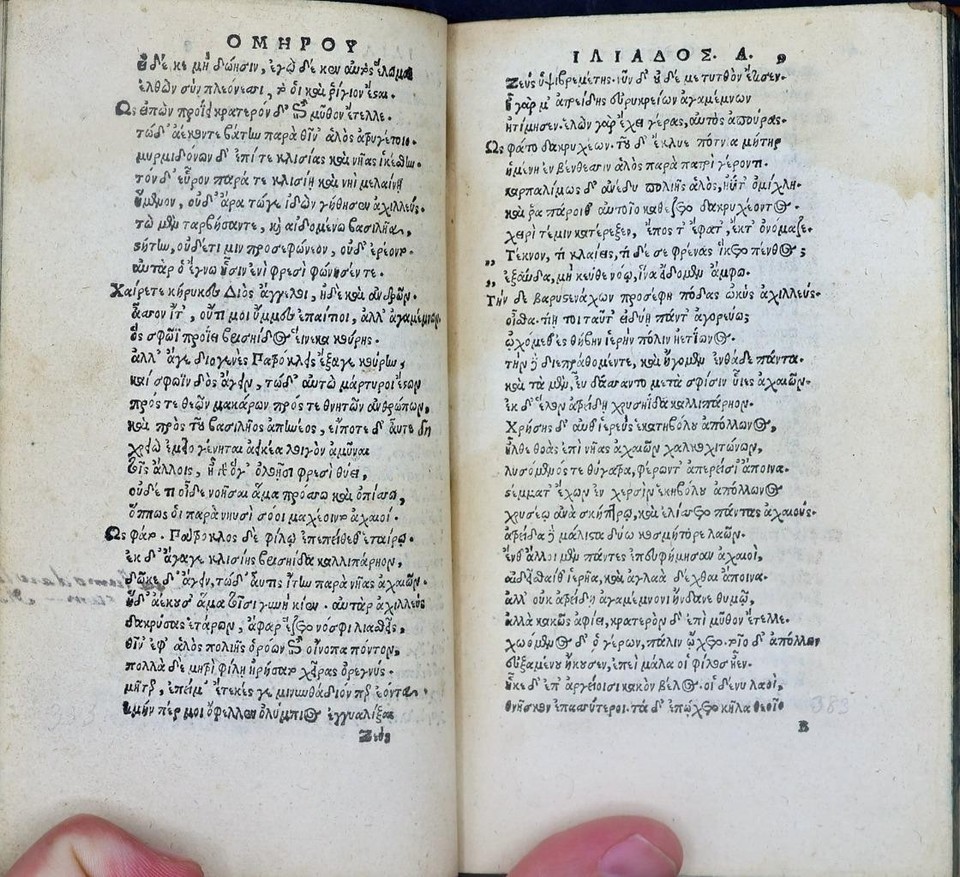 ΟΜΗΡΟΥ
εἰ δέ κε μὴ δώησιν, ἐγὼ δέ κεν αὐτὸς ἕλωμαι
ἐλθὼν σὺν πλεόνεσσι, τό οἱ καὶ ῥίγιον ἔσται.
Ὣς εἰπὼν προΐει κρατερὸν δ' ἐπὶ μῦθον ἔτελλε.
τὼ δ' ἀέκοντε βάτην παρὰ θῖν' ἁλὸς ἀτρυγέτοιο.
μυρμιδόνων δ' ἐπί τε κλισίας καὶ νῆας ἱκέσθην.
τὸν δ' εὗρον παρά τε κλισίῃ καὶ νηῒ μελαίνῃ
ἥμενον, οὐδ' ἄρα τώγε ἰδὼν γήθησεν ἀχιλλεύς.
τὼ μὲν ταρβήσαντε, κỳ αἰδομένω βασιλῆα,
στήτην, οὐδέτι μιν προσεφώνεον, οὐδ' ἐρέοντο.
αὐτὰρ ὁ ἔγνω ᾗσιν ἐνὶ φρεσὶ φώνησέν τε.
Χαίρετε κήρυκες Διὸς ἄγγελοι, ἠδὲ καὶ ἀνδρῶν.
ἆσσον ἴτ', οὔτι μοι ὔμμες ἐπαίτιοι, ἀλλ' ἀγαμέμνων,
ὃς σφῶϊ προΐει βρισηίδος εἵνεκα κούρης.
ἀλλ' ἄγε διογενὲς Πατρόκλεις ἔξαγε κούρην,
καί σφωϊν δὸς ἄγειν, τὼ δ' αὐτὼ μάρτυροι ἔστων
πρός τε θεῶν μακάρων πρός τε θνητῶν ἀνθρώπων,
καὶ πρὸς τοῦ βασιλῆος ἀπηνέος, εἴποτε δ' αὖτε δὴ
χρειὼ ἐμεῖο γένηται ἀεικέα λοιγὸν ἀμῦναι
τοῖς ἄλλοις, ἦ γὰρ ὅγ' ὀλοῇσι φρεσὶ θύει,
οὐδέ τι οἶδε νοῆσαι ἅμα πρόσσω καὶ ὀπίσσω,
ὅππως οἱ παρὰ νηυσὶ σόοι μαχέοιντο ἀχαιοί.
Ὣς φάτο. Πάτροκλος δὲ φίλῳ ἐπεπείθεθ' ἑταίρῳ.
ἐκ δ' ἄγαγε κλισίης βρισηΐδα καλλιπάρηον,
δῶκε δ' ἄγειν, τὼ δ' αὖτις ἴτην παρὰ νῆας ἀχαιῶν.
ἡ δ' ἀέκουσ' ἅμα τοῖσι γυνὴ κίεν. αὐτὰρ ἀχιλλεὺς
δακρύσας ἑτάρων, ἄφαρ ἕζετο νόσφι λιασθείς,
θῖν' ἐφ' ἁλὸς πολιῆς ὁρόων ἐπὶ οἴνοπα πόντον,
πολλὰ δὲ μητρὶ φίλῃ ἠρήσατο χεῖρας ὀρεγνύς.
μῆτερ, ἐπεί μ' ἔτεκές γε μινυνθάδιόν περ ἐόντα,
τιμήν πέρ μοι ὄφελλεν ὀλύμπιος ἐγγυαλίξαι
Ζεὺς
ΙΛΙΑΔΟΣ. Α. 9
Ζεὺς ὑψιβρεμέτης. νῦν δ' οὐδέ με τυτθὸν ἔτισεν.
ἦ γάρ μ' ἀτρείδης εὐρυκρείων ἀγαμέμνων
ἠτίμησεν. ἑλὼν γὰρ ἔχει γέρας, αὐτὸς ἀπούρας.
Ὣς φάτο δακρυχέων. τοῦ δ' ἔκλυε πότνια μήτηρ
ἡμένη ἐν βένθεσσιν ἁλὸς παρὰ πατρὶ γέροντι.
καρπαλίμως δ' ἀνέδυ πολιῆς ἁλὸς, ἠΰτ' ὀμίχλη.
καὶ ῥα πάροιθ' αὐτοῖο καθέζετο δακρυχέοντος.
χειρί τέ μιν κατέρεξεν, ἔπος τ' ἔφατ', ἔκτ' ὀνόμαζε.
„ Τέκνον, τί κλαίεις, τί δέ σε φρένας ἵκετο πένθος;
„ ἐξαύδα, μὴ κεῦθε νόῳ, ἵνα εἴδομεν ἄμφω.
Τὴν δὲ βαρυστενάχων προσέφη πόδας ὠκὺς ἀχιλλεύς.
οἶσθα. τίη τοι ταῦτ' εἰδυίῃ πάντ' ἀγορεύω;
ᾠχόμεθ' ἐς θήβην ἱερὴν πόλιν ἠετίωνος.
τὴν δὲ διεπράθομέν τε, καὶ ἤγομεν ἐνθάδε πάντα.
καὶ τὰ μὲν, εὖ δάσσαντο μετὰ σφίσιν υἷες ἀχαιῶν.
ἐκ δ' ἕλον ἀτρείδῃ χρυσηΐδα καλλιπάρηον.
Χρύσης δ' αὖθ' ἱερεὺς ἑκατηβόλου ἀπόλλωνος,
ἦλθε θοὰς ἐπὶ νῆας ἀχαιῶν χαλκοχιτώνων,
λυσόμενός τε θύγατρα, φέρων τ' ἀπερείσι' ἄποινα.
στέμματ' ἔχων ἐν χερσὶν ἑκηβόλου ἀπόλλωνος
χρυσέῳ ἀνὰ σκήπτρῳ, καὶ ἐλίσσετο πάντας ἀχαιούς.
ἀτρείδα δὲ μάλιστα δύω κοσμήτορε λαῶν.
ἔνθ' ἄλλοι μὲν πάντες ἐπευφήμησαν ἀχαιοί,
αἰδεῖσθαίθ' ἱερῆα, καὶ ἀγλαὰ δέχθαι ἄποινα.
ἀλλ' οὐκ ἀτρείδῃ ἀγαμέμνονι ἥνδανε θυμῷ,
ἀλλὰ κακῶς ἀφίει, κρατερὸν δ' ἐπὶ μῦθον ἔτελλε.
χωόμενος δ' ὁ γέρων, πάλιν ᾤχετο. τοῖο δ' ἀπόλλων
εὐξαμένου ἤκουσεν, ἐπεὶ μάλα οἱ φίλος ἦεν.
ἧκε δ' ἐπ' ἀργείοισι κακὸν βέλος. οἱ δέ νυ λαοὶ,
θνῆσκον ἐπασσύτεροι. τὰ δ' ἐπῴχετο κῆλα θεοῖο
B
383